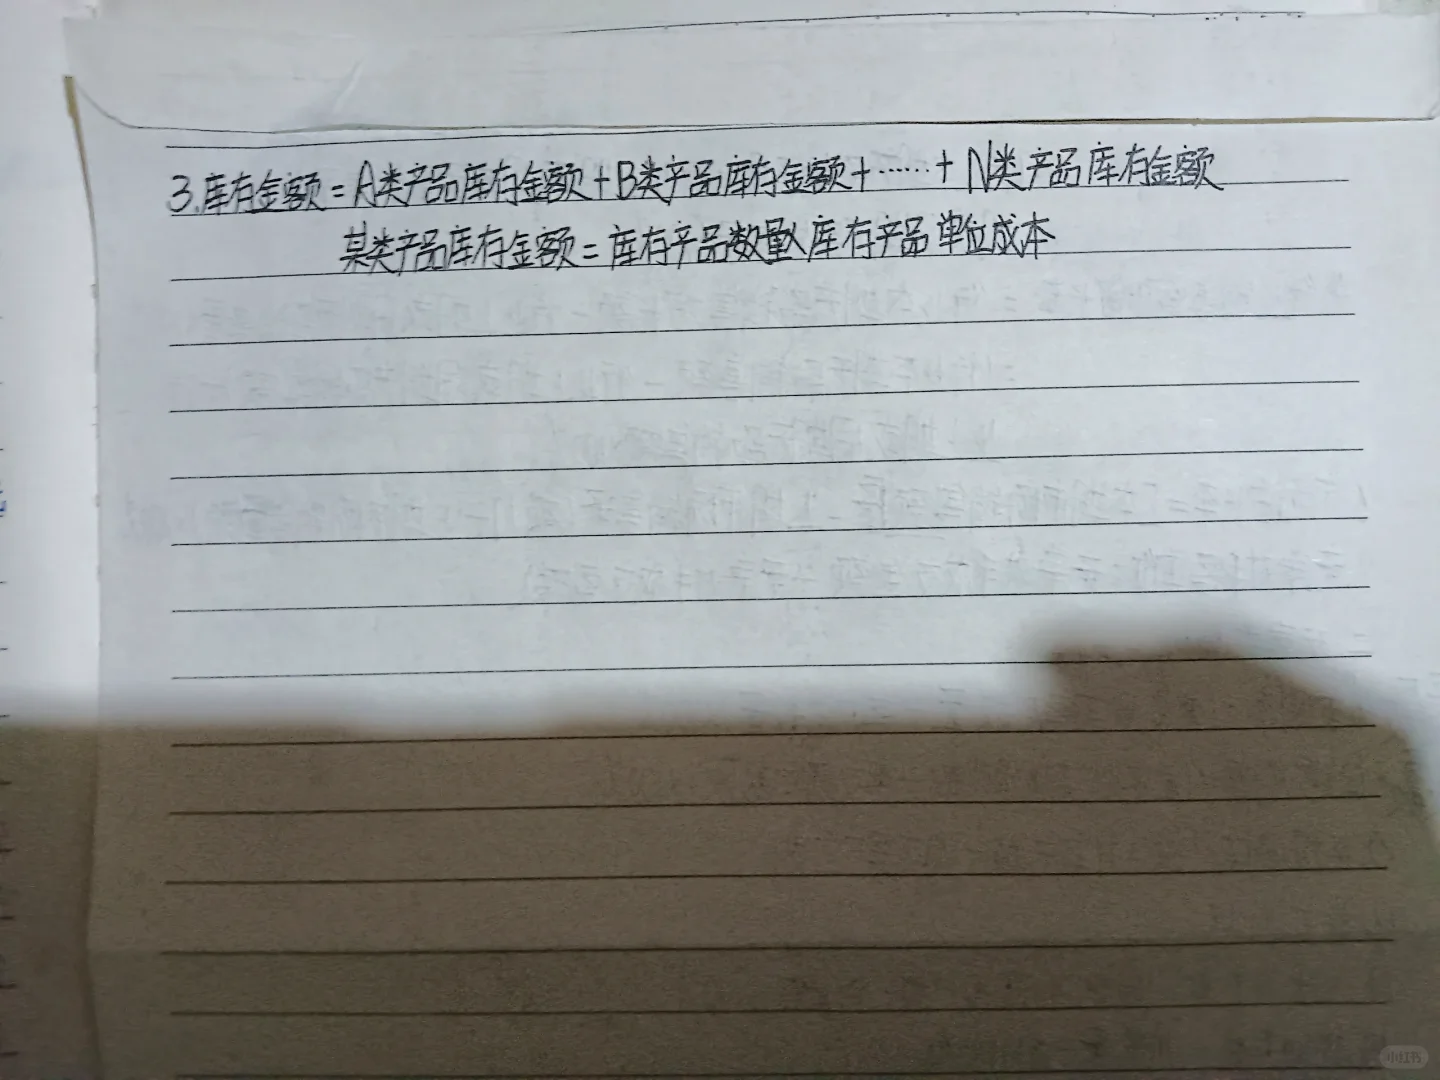 3.库存金额=A类产品库存金额+B类产品库存金额+……+N类产品库存金额
某类产品库存金额=库存产品数量×库存产品单位成本
小红书